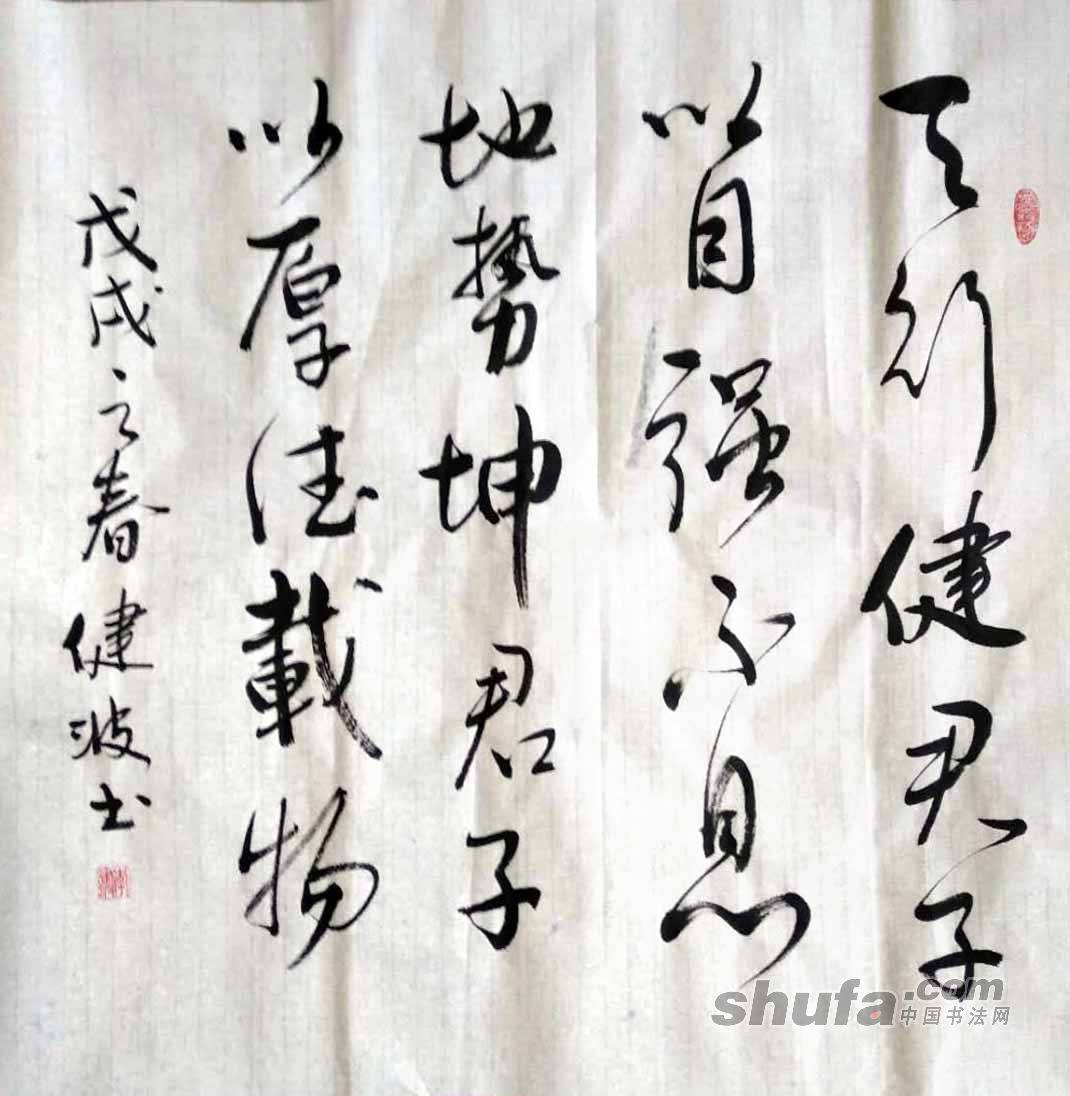 天行健君子
以自强不息
地势坤君子
以厚德載物
戊戌之春健波书
shufa.com
中国书法网